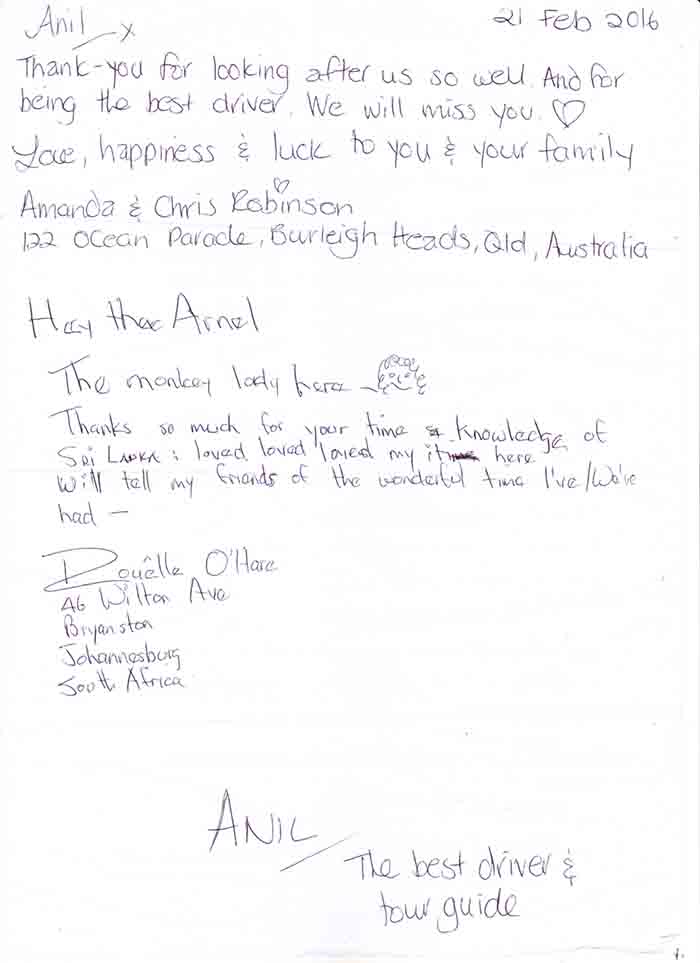 Anil x
21 Feb 2016
Thank-you for looking after us so well. And for
being the best driver. We will miss you. ♡
Love, happiness & luck to you & your family
Amanda & Chris Robinson
122 Ocean Parade, Burleigh Heads, Qld, Australia
Hey there Arnel
The monkey lady here
Thanks so much for your time & knowledge of
Sri Lanka : loved loved loved my here
Will tell my friends of the wonderful time I've/We've
had —
Douêlle O'Hare
46 Wilton Ave
Bryanston
Johannesburg
South Africa
ANIL
The best driver &
tour guide